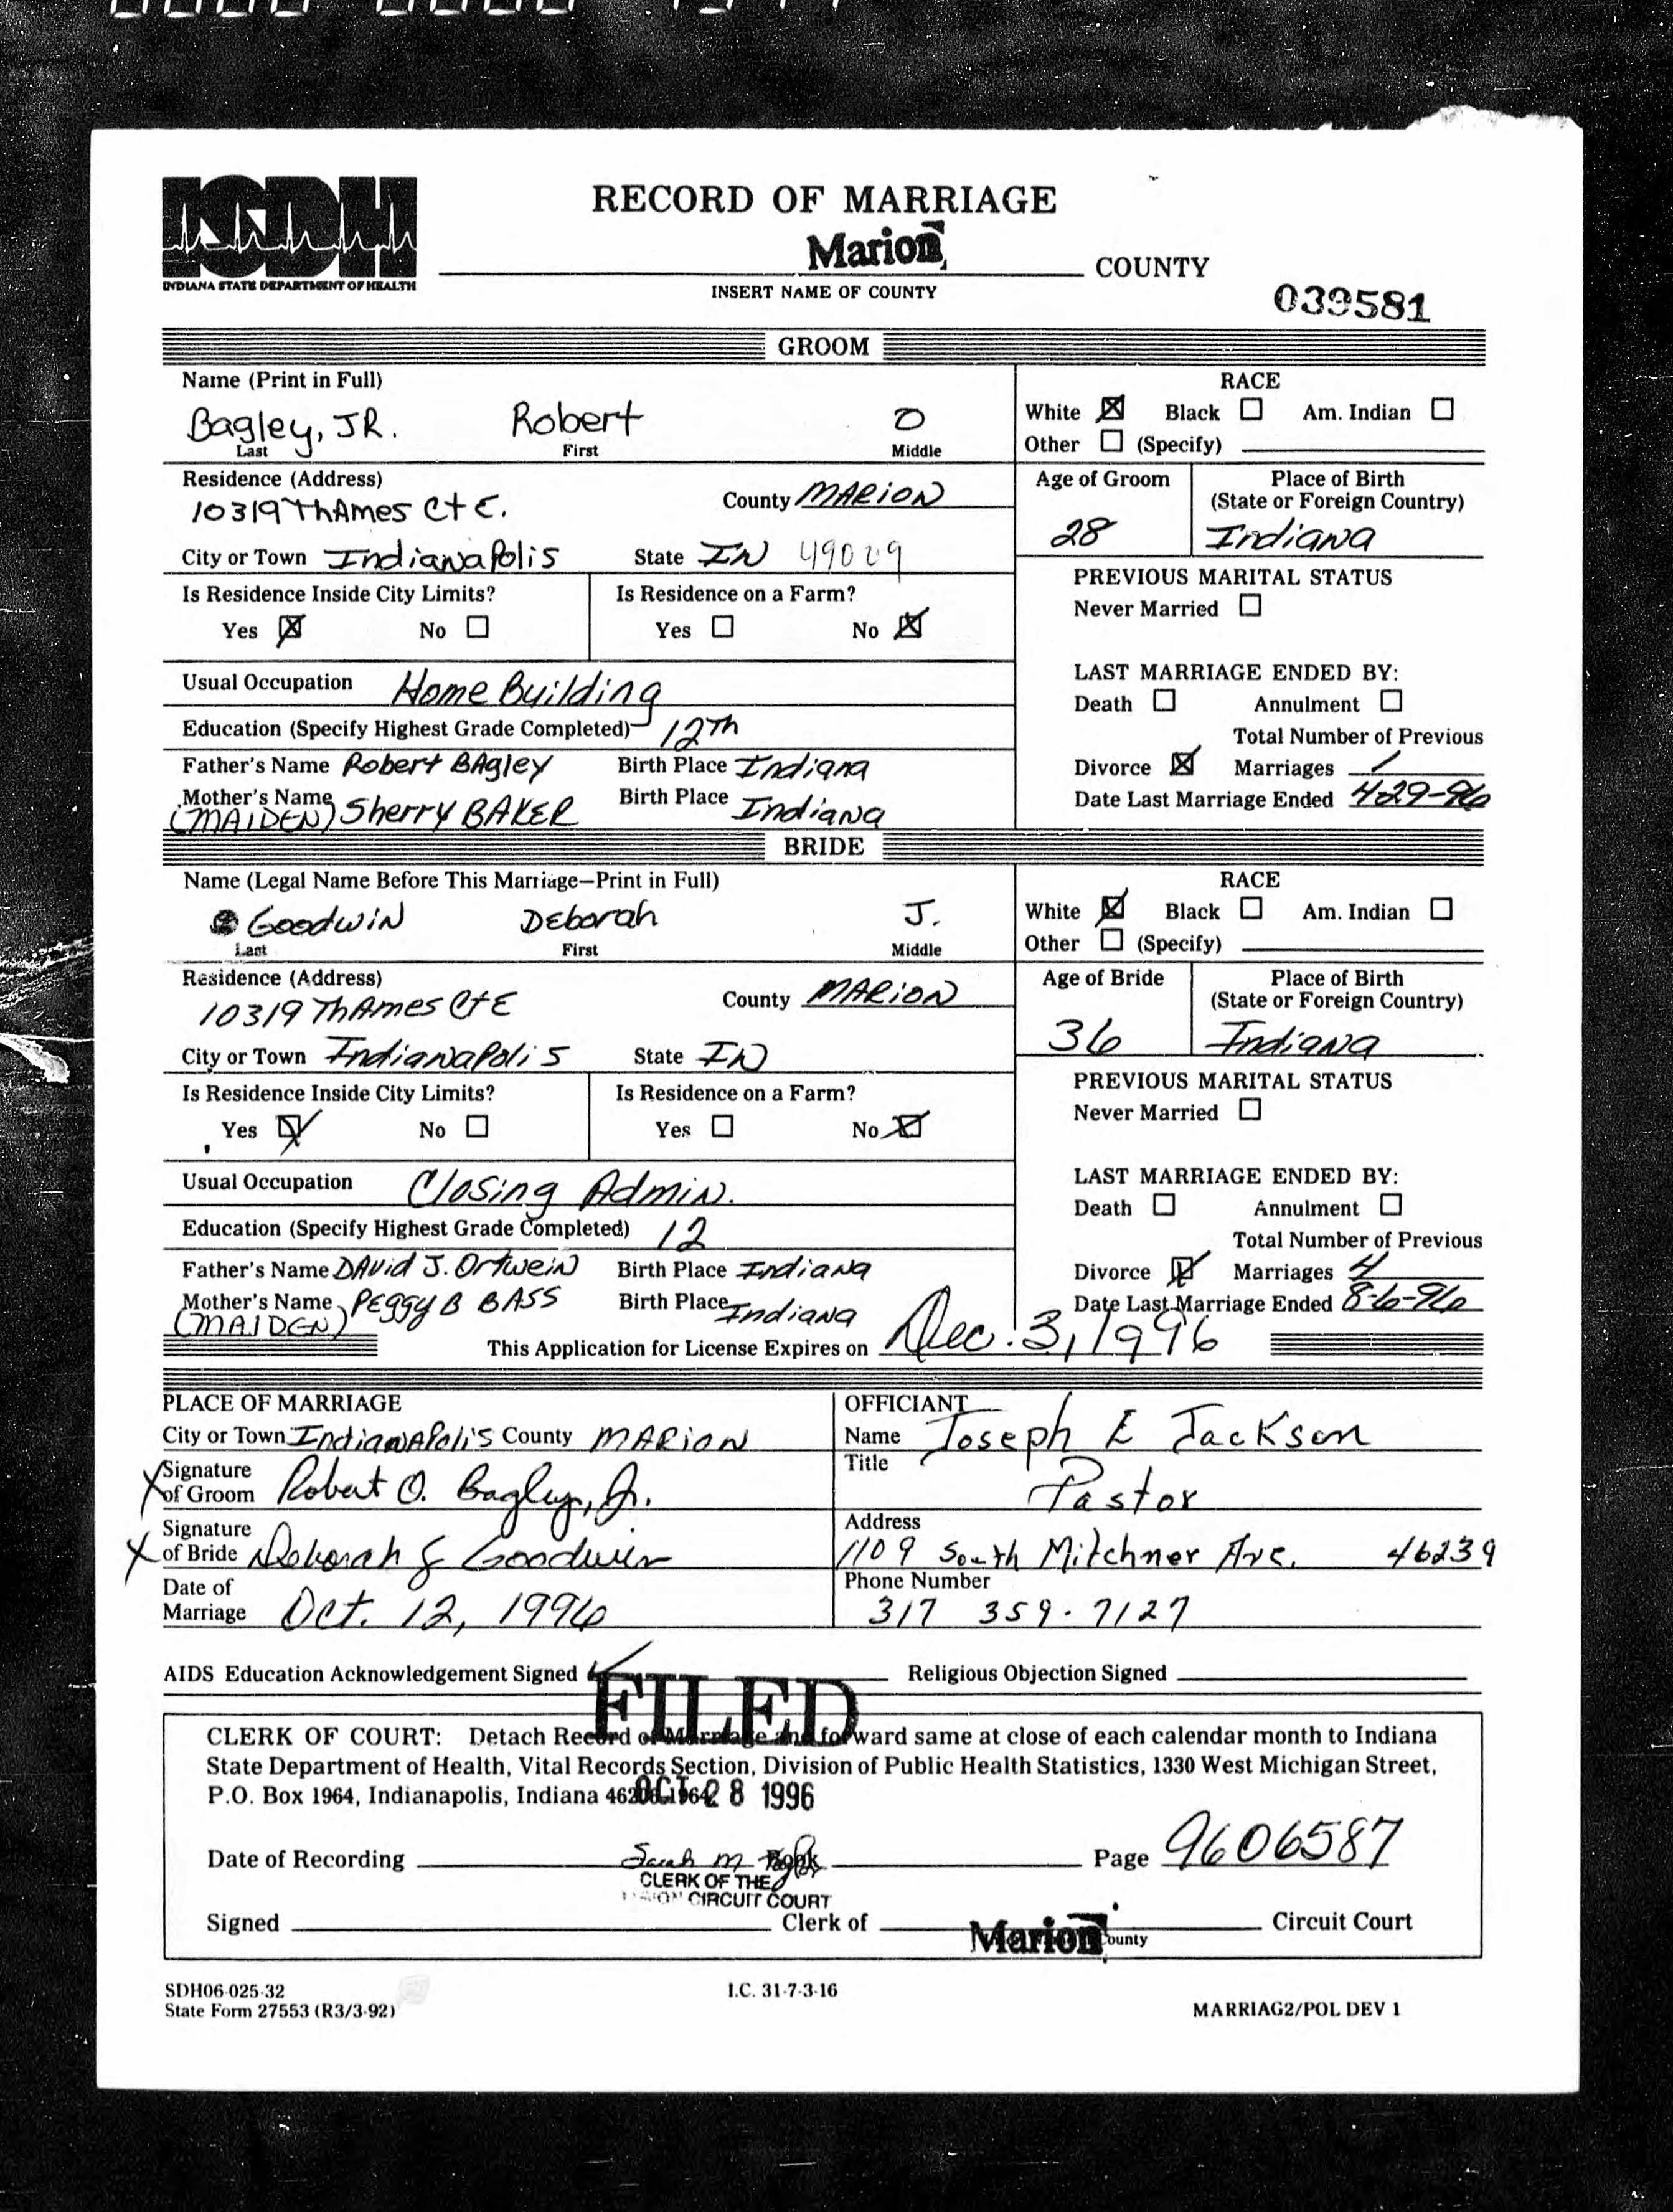 ISDH
INDIANA STATE DEPARTMENT OF HEALTH
RECORD OF MARRIAGE
Marion, COUNTY
INSERT NAME OF COUNTY
039581
GROOM
Name (Print in Full)
Bagley, JR. Robert O
Last First Middle
RACE
White ☒ Black ☐ Am. Indian ☐
Other ☐ (Specify)
Residence (Address)
10319 ThAmes Ct E. County MARION
City or Town Indianapolis State IN 49029
Age of Groom
28
Place of Birth
(State or Foreign Country)
Indiana
Is Residence Inside City Limits?
Yes ☒ No ☐
Is Residence on a Farm?
Yes ☐ No ☒
PREVIOUS MARITAL STATUS
Never Married ☐
Usual Occupation Home Building
Education (Specify Highest Grade Completed) 12Th
Father's Name Robert BAgley Birth Place Indiana
Mother's Name (MAIDEN) Sherry BAKER Birth Place Indiana
LAST MARRIAGE ENDED BY:
Death ☐ Annulment ☐
Total Number of Previous
Divorce ☒ Marriages 1
Date Last Marriage Ended 4-29-96
BRIDE
Name (Legal Name Before This Marriage—Print in Full)
Goodwin Deborah J.
Last First Middle
RACE
White ☒ Black ☐ Am. Indian ☐
Other ☐ (Specify)
Residence (Address)
10319 ThAmes Ct E County MARION
City or Town Indianapolis State IN
Age of Bride
36
Place of Birth
(State or Foreign Country)
Indiana
Is Residence Inside City Limits?
Yes ☒ No ☐
Is Residence on a Farm?
Yes ☐ No ☒
PREVIOUS MARITAL STATUS
Never Married ☐
Usual Occupation Closing Admin.
Education (Specify Highest Grade Completed) 12
Father's Name DAvid J. Ortwein Birth Place Indiana
Mother's Name (MAIDEN) PEggy B BASS Birth Place Indiana
LAST MARRIAGE ENDED BY:
Death ☐ Annulment ☐
Total Number of Previous
Divorce ☒ Marriages 4
Date Last Marriage Ended 8-6-96
This Application for License Expires on Dec. 3, 1996
PLACE OF MARRIAGE
City or Town IndianApolis County MARION
Signature
X of Groom Robert O. Bagley, Jr.
Signature
X of Bride Deborah J Goodwin
Date of
Marriage Oct. 12, 1996
OFFICIANT
Name Joseph E Jackson
Title Pastor
Address
1109 South Mitchner Ave. 46239
Phone Number
317 359-7127
AIDS Education Acknowledgement Signed ✓ Religious Objection Signed
FILED
CLERK OF COURT: Detach Record of Marriage and forward same at close of each calendar month to Indiana
State Department of Health, Vital Records Section, Division of Public Health Statistics, 1330 West Michigan Street,
P.O. Box 1964, Indianapolis, Indiana 46206-1964
OCT 28 1996
Date of Recording Book Page 9606587
Sarah M
CLERK OF THE
CIRCUIT COURT
Signed Clerk of Marion Circuit Court
County
SDH06-025-32
State Form 27553 (R3/3-92)
I.C. 31-7-3-16
MARRIAG2/POL DEV 1